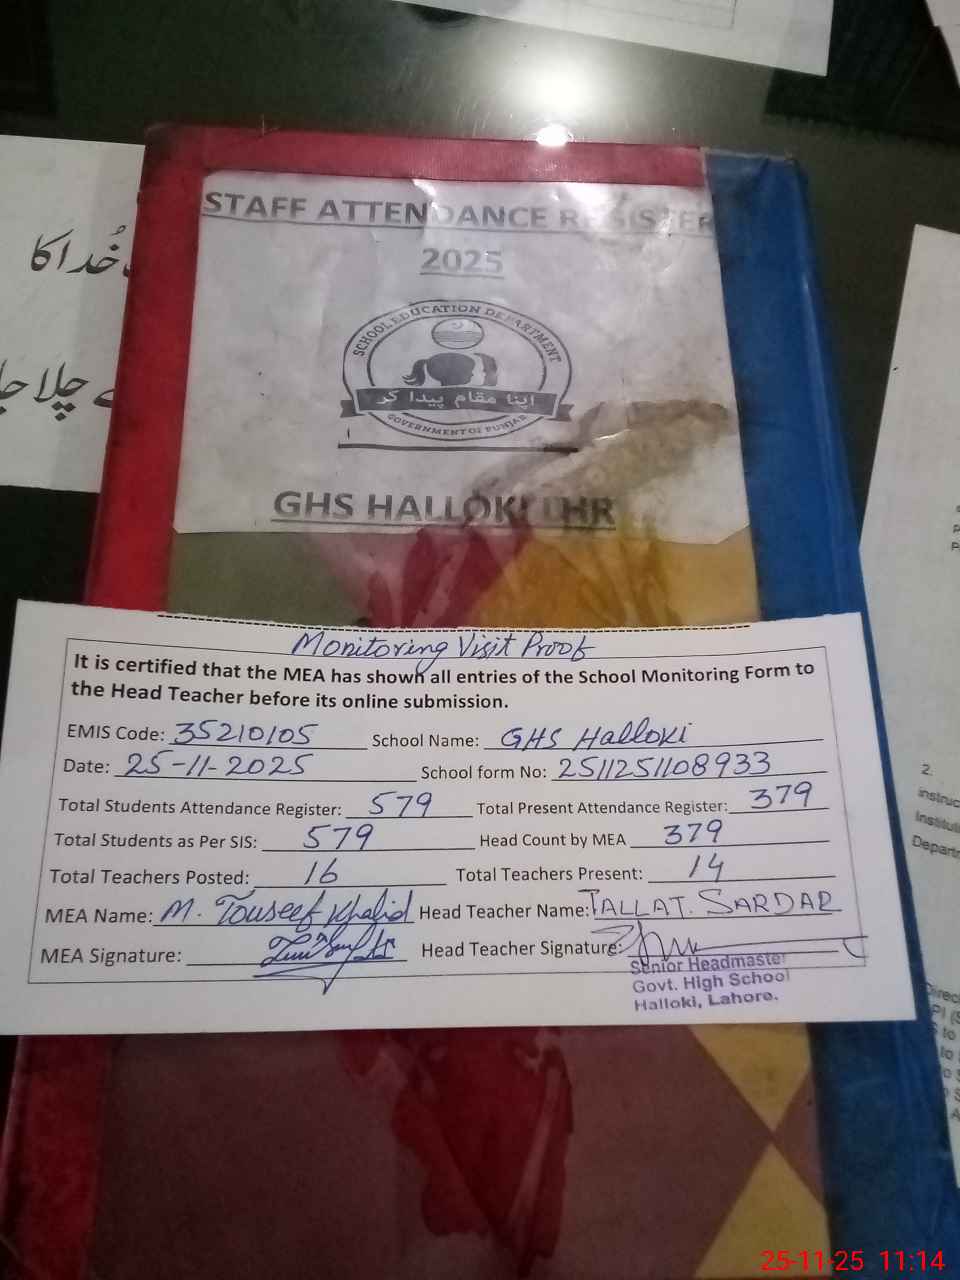 STAFF ATTENDANCE REGISTER
2025
SCHOOL EDUCATION DEPARTMENT
اپنا مقام پیدا کر
GOVERNMENT OF PUNJAB
GHS HALLOKI LHR
خُدا کا
چلا جا
Monitoring Visit Proof
It is certified that the MEA has shown all entries of the School Monitoring Form to
the Head Teacher before its online submission.
EMIS Code: 35210105 School Name: GHS Halloki
Date: 25-11-2025 School form No: 2511251108933
Total Students Attendance Register: 579 Total Present Attendance Register: 379
Total Students as Per SIS: 579 Head Count by MEA 379
Total Teachers Posted: 16 Total Teachers Present: 14
MEA Name: M. Touseef Khalid Head Teacher Name: TALLAT. SARDAR
MEA Signature: Head Teacher Signature:
Senior Headmaster
Govt. High School
Halloki, Lahore.
2.
25-11-25 11:14